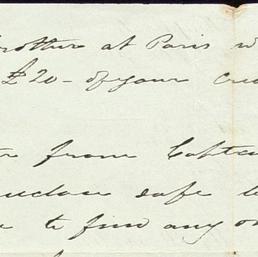 brother at Paris w
£20 - of your cre
from Capta
enclose safe
to find any o